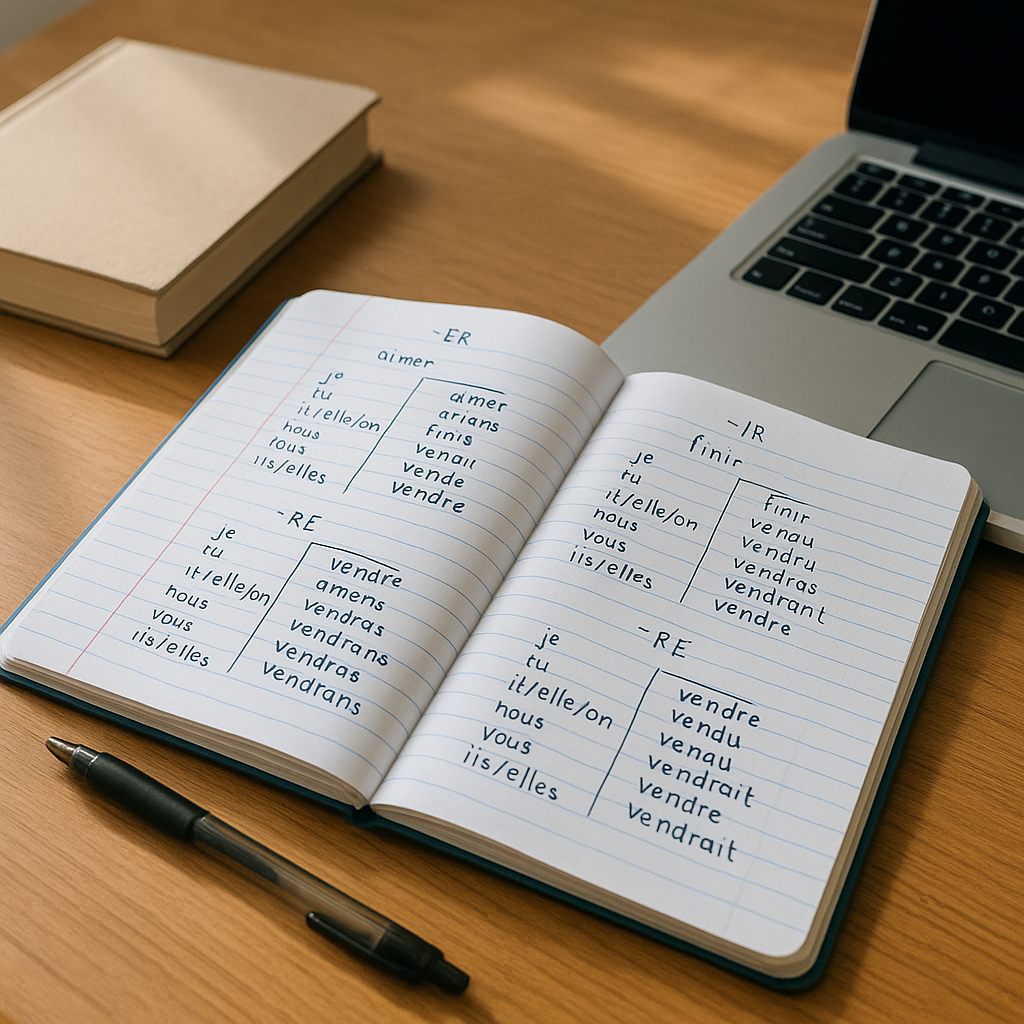 -ER
aimer
je
tu
it/elle/on
hous
tous
iis/elles
aimer
arians
finis
venaii
vende
vendre
-RE
je
tu
it/elle/on
hous
vous
iis/elles
vendre
amens
vendras
vendrans
vendras
vendrans
-IR
finir
je
tu
it/elle/on
nous
vous
iis/elles
finir
venau
vendru
vendras
vendrant
vendre
-RE
je
tu
it/elle/on
nous
vous
iis/elles
vendre
vendu
venau
vendrait
vendre
vendrait